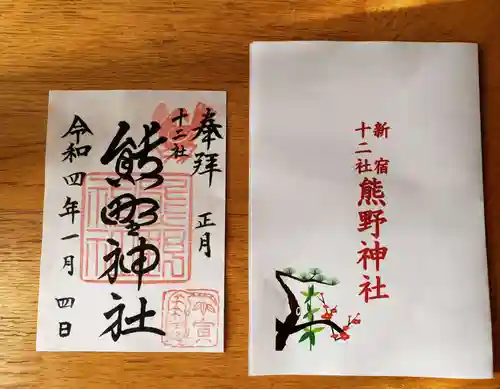 奉拝
正月
十二社
熊野神社
令和四年一月四日
新宿
十二社
熊野神社